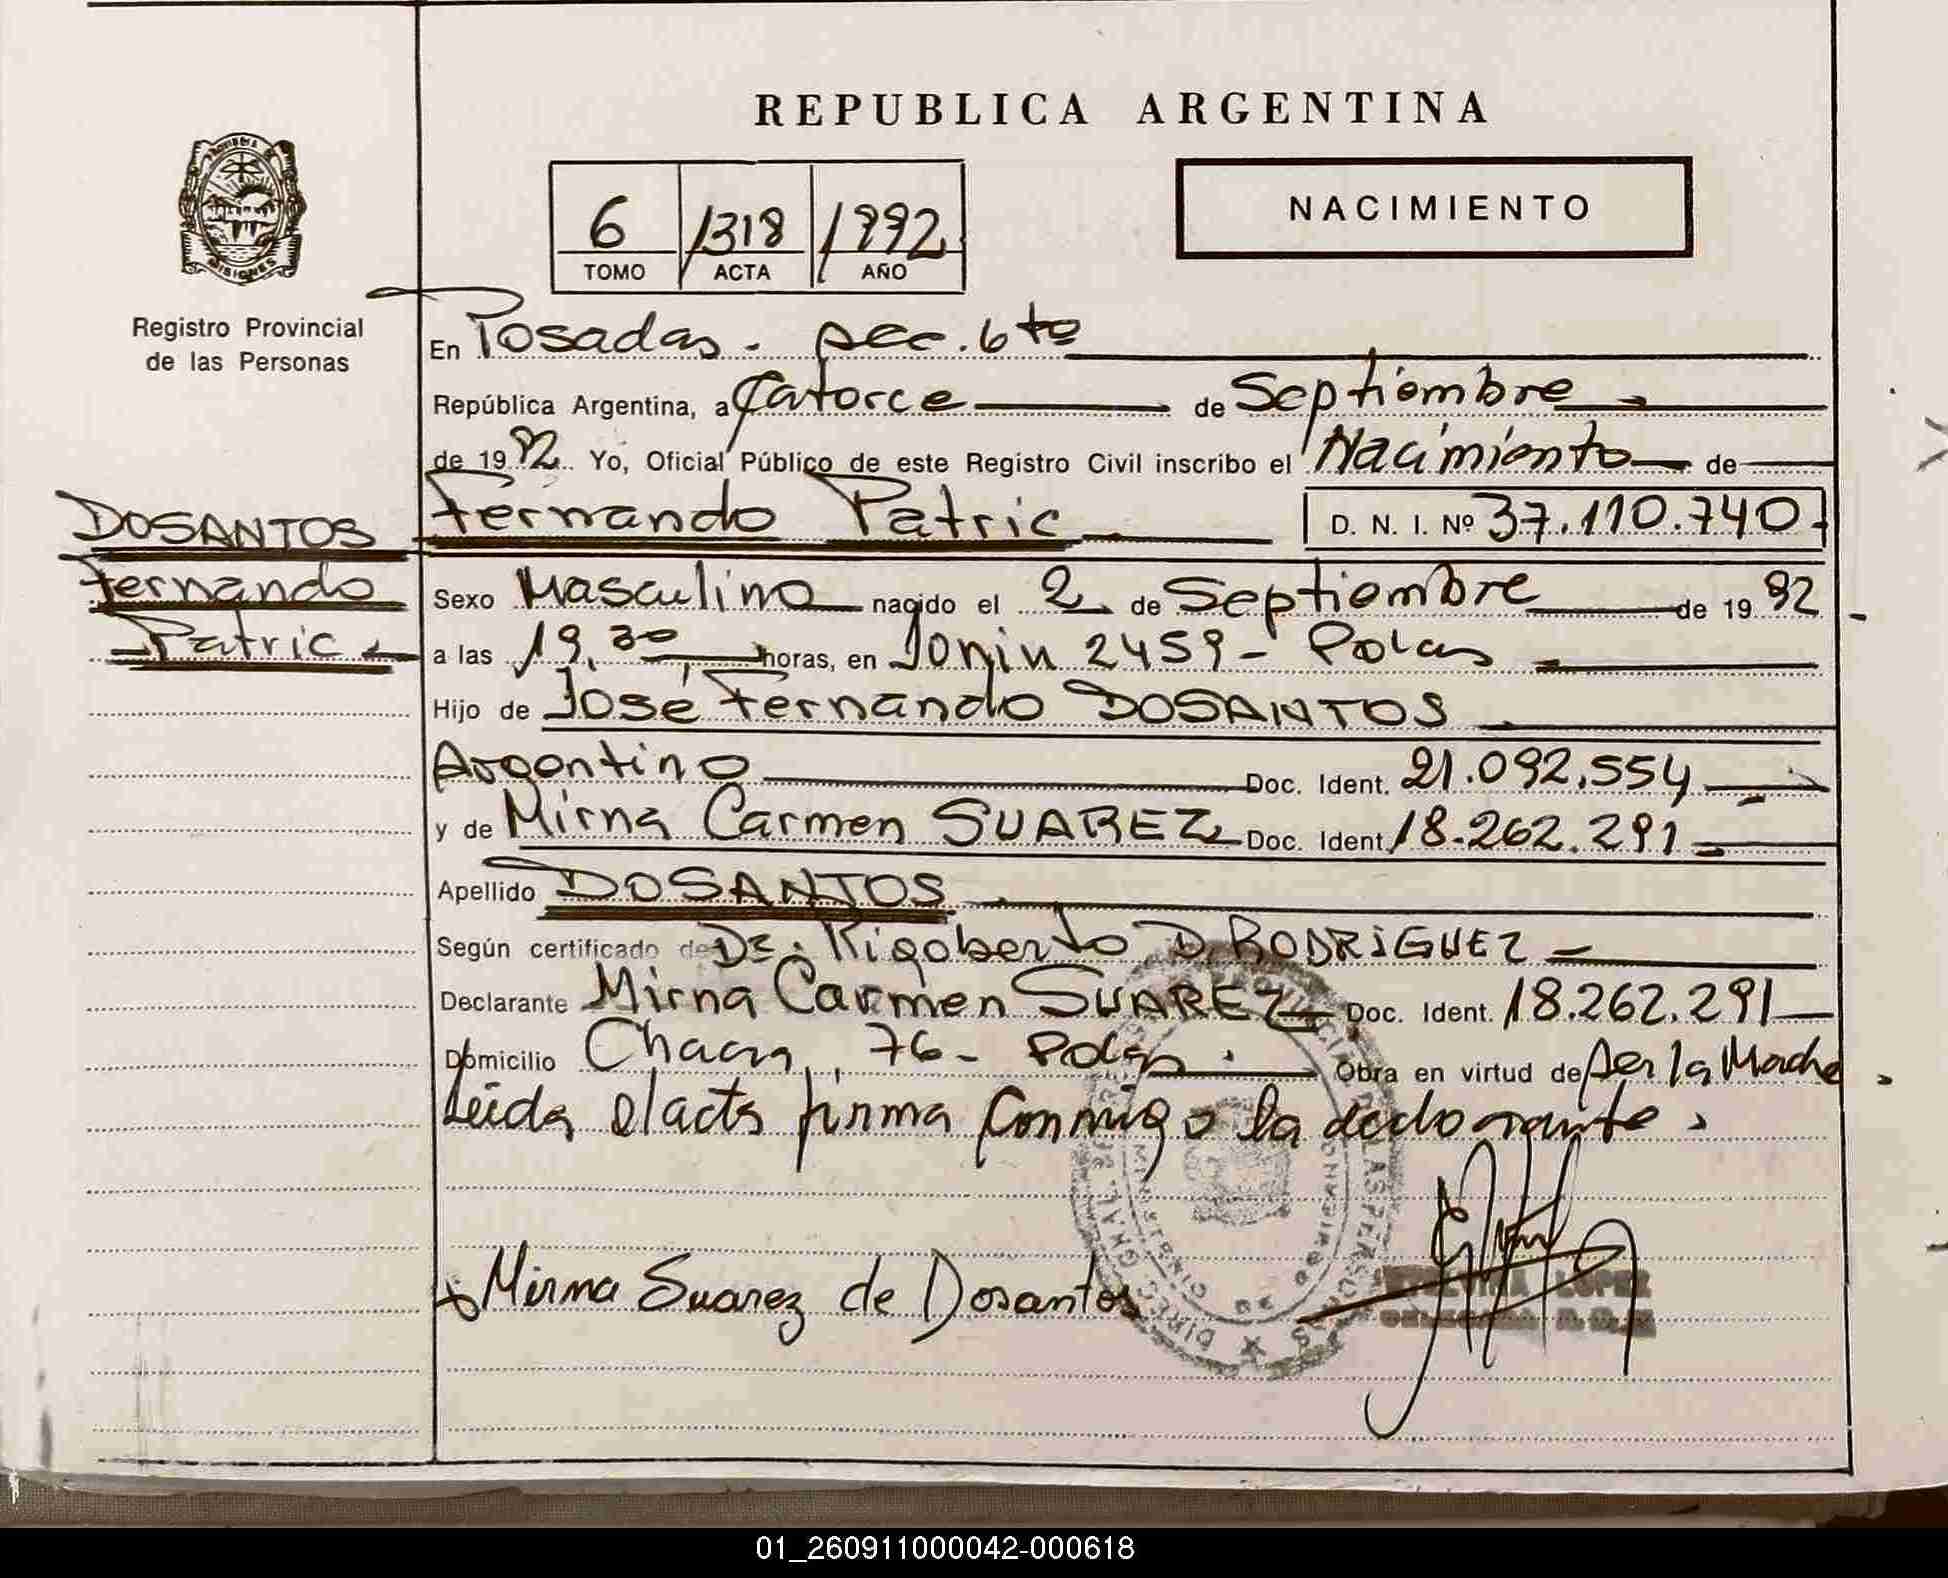 REPUBLICA ARGENTINA
NACIMIENTO
6 1318 1992
TOMO ACTA AÑO
Registro Provincial
de las Personas
En Posadas - sec. 6ta
República Argentina, a Catorce de Septiembre
de 1992 Yo, Oficial Público de este Registro Civil inscribo el Nacimiento de
DOSANTOS
Fernando
Patric
Fernando Patric D. N. I. Nº 37.110.740
Sexo Masculino nacido el 2 de Septiembre de 1992
a las 19,30 horas, en Junin 2459 - Pdas
Hijo de José Fernando DOSANTOS
Argentino Doc. Ident. 21.092.554
y de Mirna Carmen SUAREZ Doc. Ident. 18.262.291
Apellido DOSANTOS
Según certificado de Dr. Rigoberto D. RODRIGUEZ
Declarante Mirna Carmen SUAREZ Doc. Ident. 18.262.291
Domicilio 76 - Pdas. Obra en virtud de ser la Madre
Leida el acta firma conmigo la declarante.
Mirna Suarez de Dosantos
LOPEZ
01_260911000042-000618